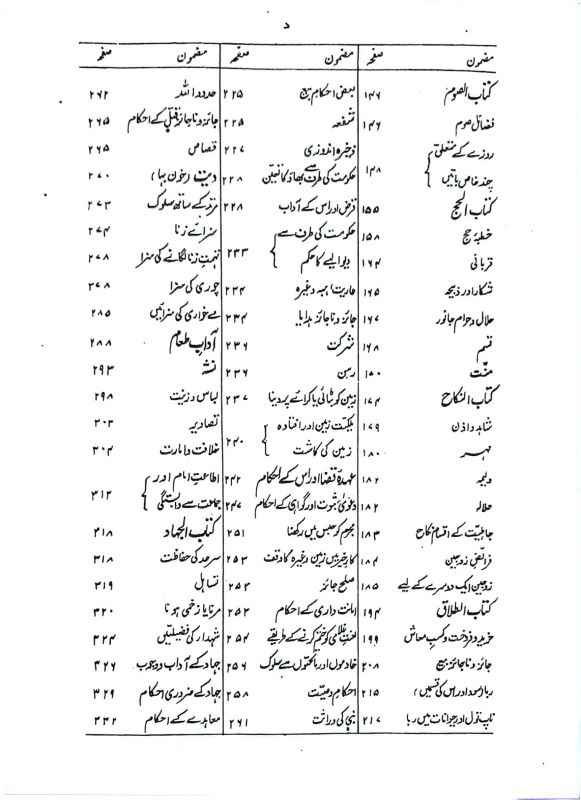 د
مضمون صفحہ مضمون صفحہ مضمون صفحہ
کتاب الصوم ۱۴۶ بعض احکام بیع ۲۲۵ حدود اللہ ۲۶۲
فضائل صوم ۱۴۶ شفعہ ۲۲۵ جائز و ناجائز قتل کے احکام ۲۶۵
روزے کے متعلق ذخیرہ اندوزی ۲۲۷ قصاص ۲۶۵
چند خاص باتیں ۱۴۸ حکومت کی طرف سے بھاؤ کا تعین ۲۲۸ دیت (خون بہا) ۲۷۰
کتاب الحج ۱۵۵ قرض اور اس کے آداب ۲۲۸ مرتد کے ساتھ سلوک ۲۷۳
خطبۂ حج ۱۵۸ حکومت کی طرف سے سزائے زنا ۲۷۴
قربانی ۱۶۴ دیوالیے کا حکم ۲۳۳ تہمت زنا لگانے کی سزا ۲۷۸
شکار اور ذبیحہ ۱۶۵ عاریت، ہبہ وغیرہ ۲۳۴ چوری کی سزا ۲۷۸
حلال و حرام جانور ۱۶۷ جائز و ناجائز ہدایا ۲۳۴ مے خواری کی سزائیں ۲۸۵
قسم ۱۶۸ شرکت ۲۳۶ آداب طعام ۲۸۸
منّت ۱۵۰ رہن ۲۳۶ نشہ ۲۹۳
کتاب النکاح ۱۷۴ زمین کو بٹائی یا کرائے پر دینا ۲۳۷ لباس و زینت ۲۹۸
شاہد و اذن ۱۷۹ ملکیت زمین اور افتادہ تصاویر ۳۰۳
مہر ۱۸۰ زمین کی کاشت ۲۴۰ خلافت و امارت ۳۰۴
ولیمہ ۱۸۲ عہدۂ قضا اور اس کے احکام ۲۴۲ اطاعت امام اور
حلالہ ۱۸۲ دعویٰ ثبوت اور گواہی کے احکام ۲۴۷ جماعت سے وابستگی ۳۱۲
جاہلیت کے اقسام نکاح ۱۸۳ مجرم کو حبس میں رکھنا ۲۵۱ کتاب الجہاد ۳۱۸
فرائض زوجین ۱۸۴ کار خیر میں زمین وغیرہ کا وقف ۲۵۳ سرحد کی حفاظت ۳۱۸
زوجین ایک دوسرے کے لیے ۱۸۵ صلح جائز ۲۵۳ تساہل ۳۱۹
کتاب الطلاق ۱۹۴ امانت داری کے احکام ۲۵۳ مرنا یا زخمی ہونا ۳۲۰
خرید و فروخت و کسب معاش ۱۹۹ لعنت غلامی کو ختم کرنے کے طریقے ۲۵۴ شہداء کی فضیلتیں ۳۲۴
جائز و ناجائز بیع ۲۰۸ خادموں اور ماتحتوں سے سلوک ۲۵۶ جہاد کے آداب و وجوب ۳۲۶
ربا (سود اور اس کی قسمیں) ۲۱۵ احکام وصیت ۲۵۸ جہاد کے ضروری احکام ۳۲۹
ناپ تول اور حیوانات میں ربا ۲۱۷ نبی کی وراثت ۲۶۱ معاہدے کے احکام ۳۳۲